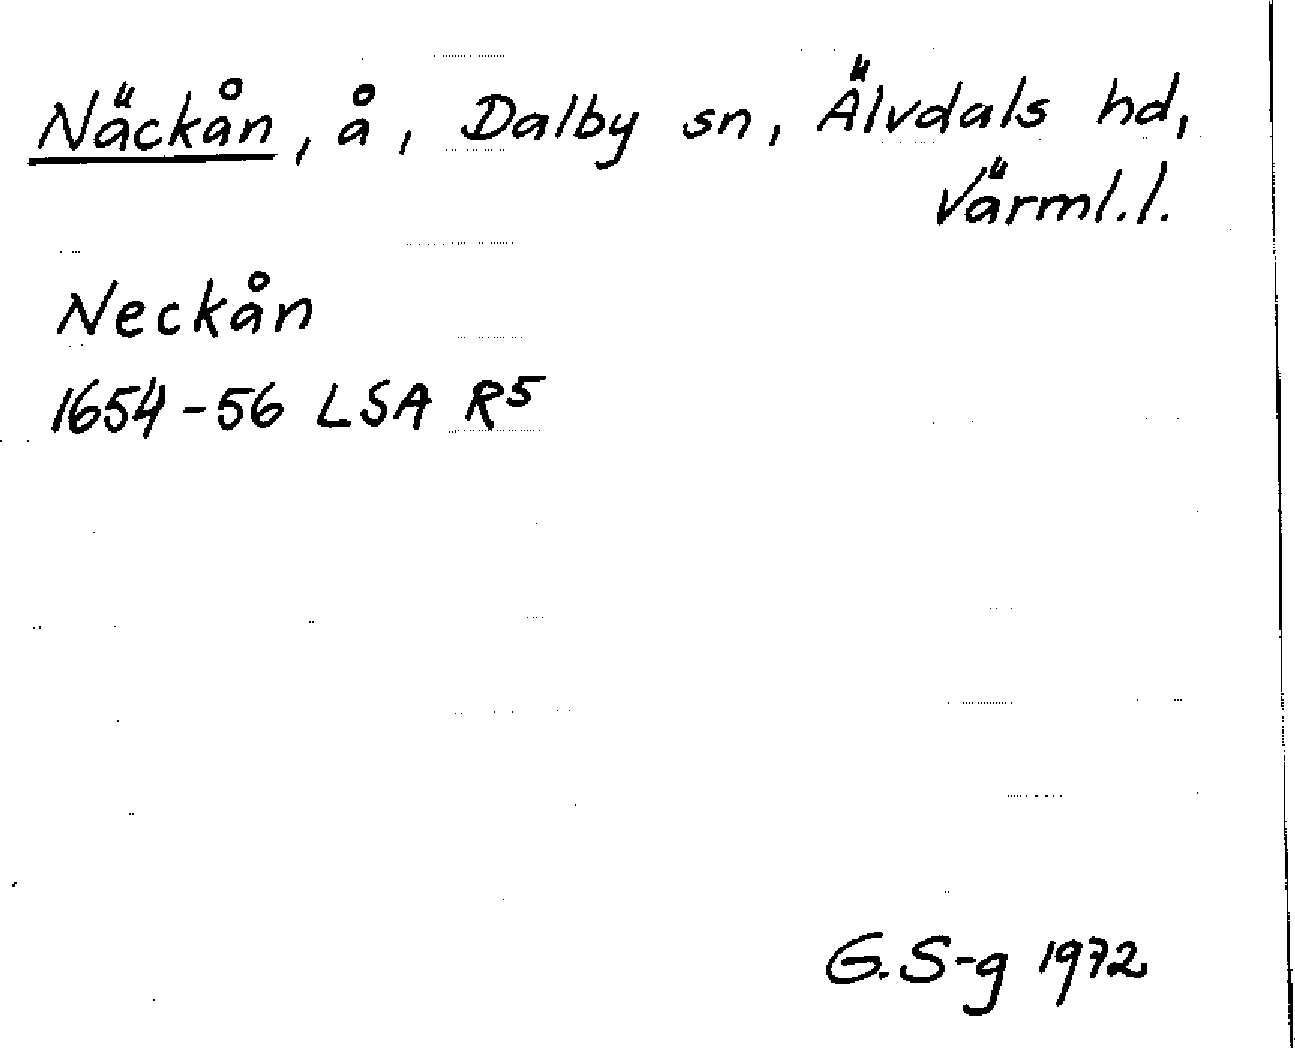 Näckån, å, Dalby sn, Älvdals hd,
Värml.l.
Neckån
1654-56 LSA R5
G.S-g 1972